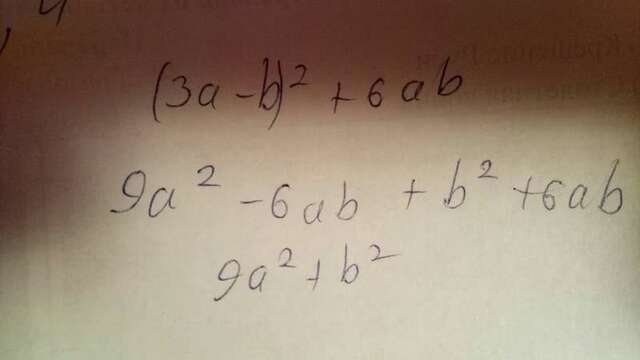 (3a-b)² + 6ab
9a² - 6ab + b² + 6ab
9a² + b²